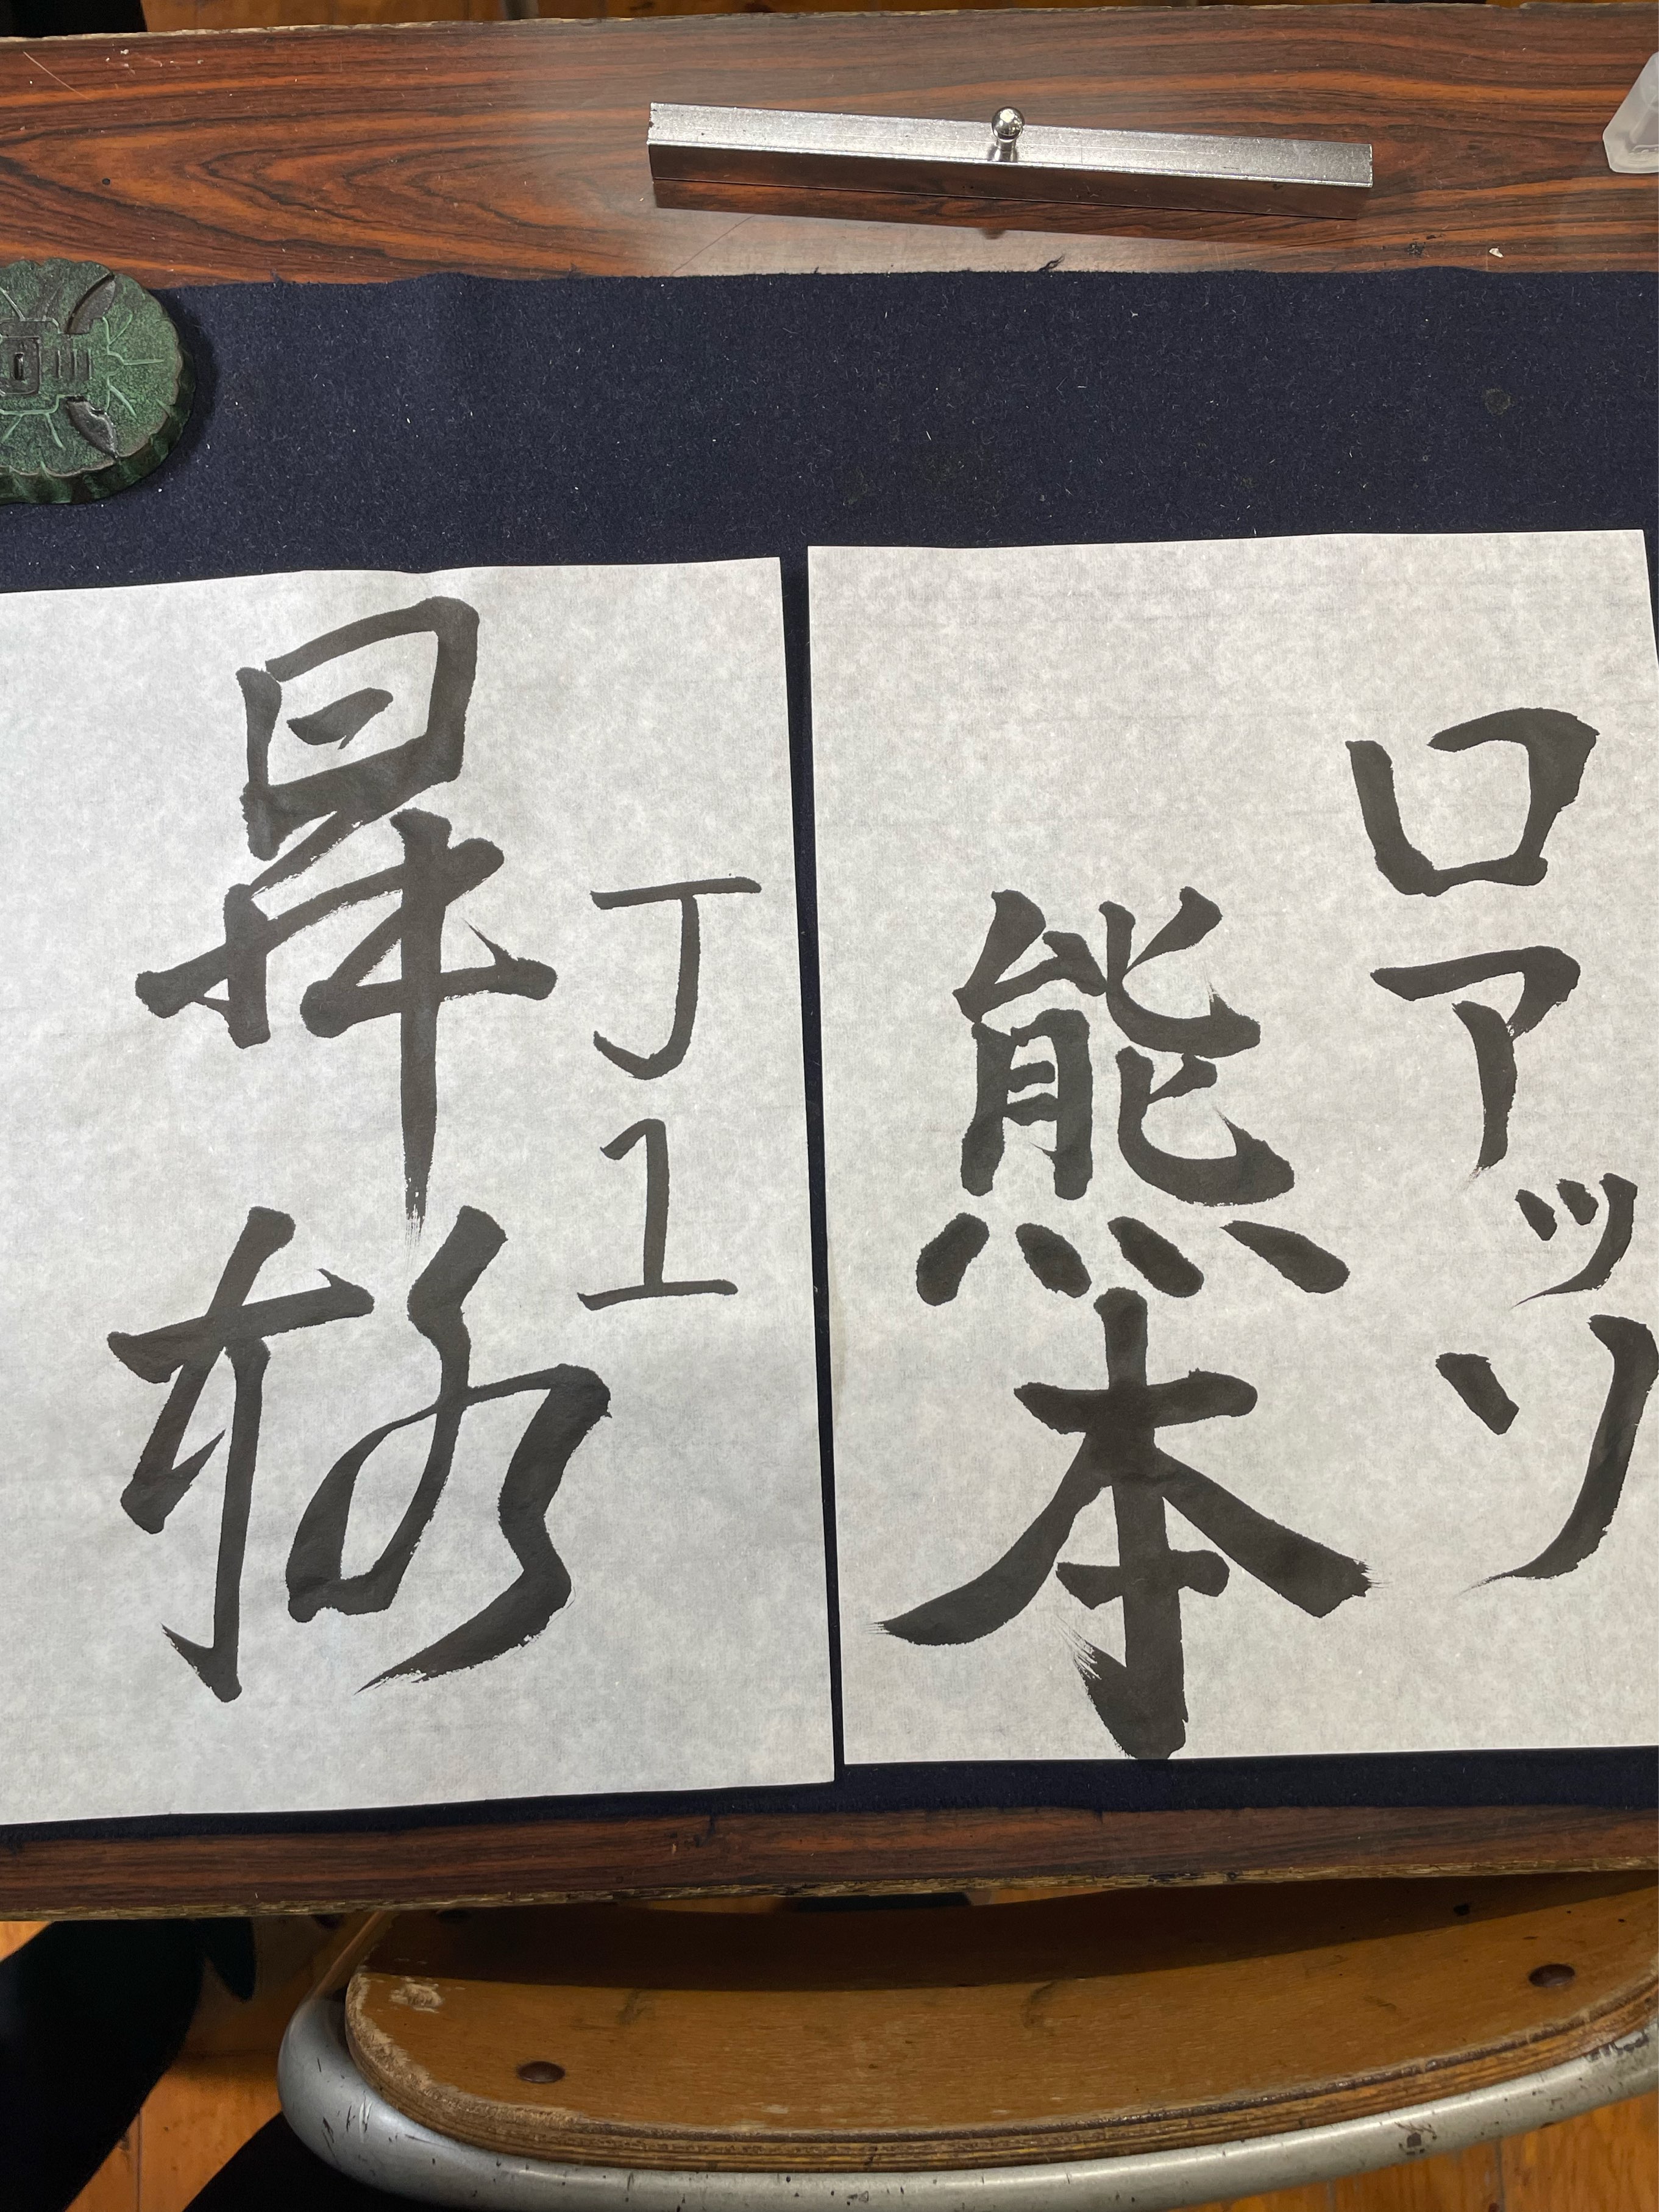 ロアッソ
熊本
J1
昇格